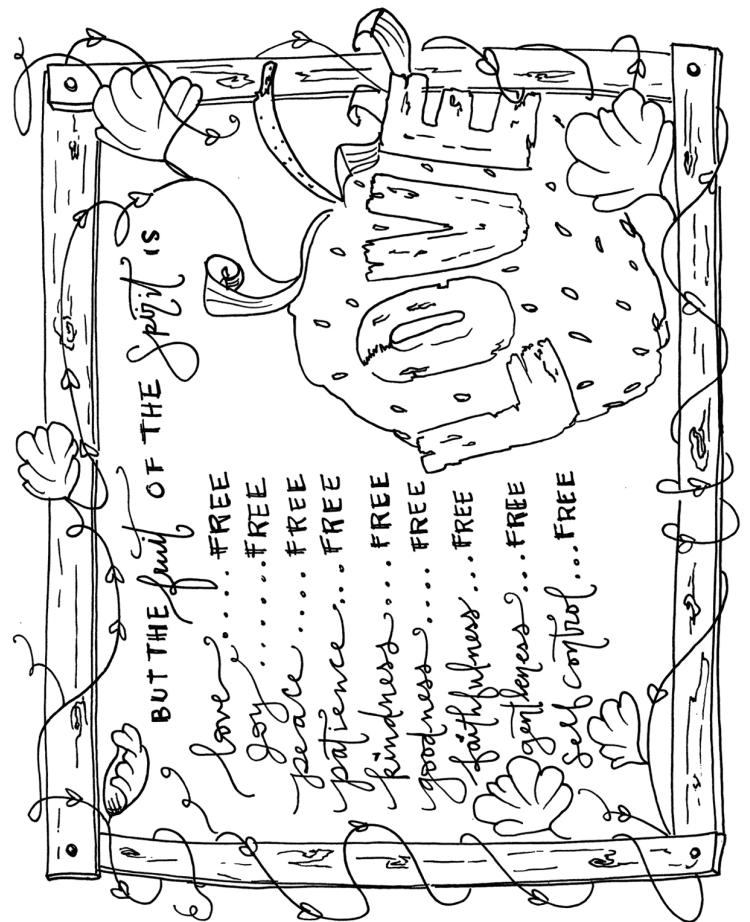 BUT THE fruit OF THE Spirit IS
love.....FREE
joy......FREE
peace....FREE
patience...FREE
kindness....FREE
goodness....FREE
faithfulness...FREE
gentleness...FREE
self control...FREE
LOVE